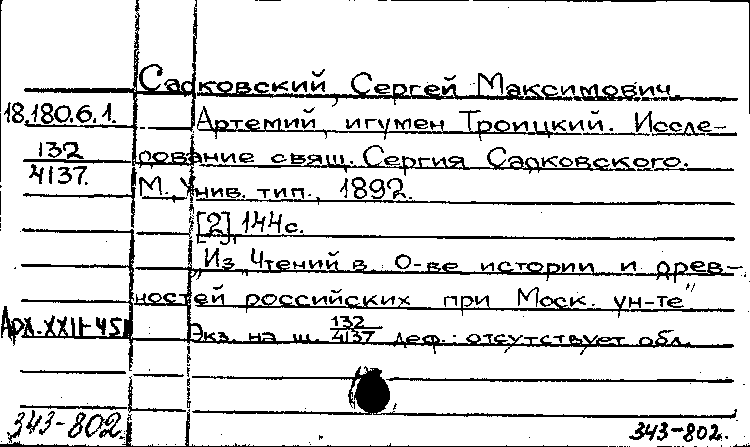 Садковский, Сергей Максимович.
18.180.6.1. Артемий, игумен Троицкий. Иссле-
132/4137. дование свящ. Сергия Садковского.
М., Унив. тип., 1892.
[2], 144с.
"Из "Чтений в О-ве истории и древ-
ностей российских при Моск. ун-те"
Арх. XXII-45 Экз. на ш. 132/4137 деф.: отсутствует обл.
343-802. 343-802.